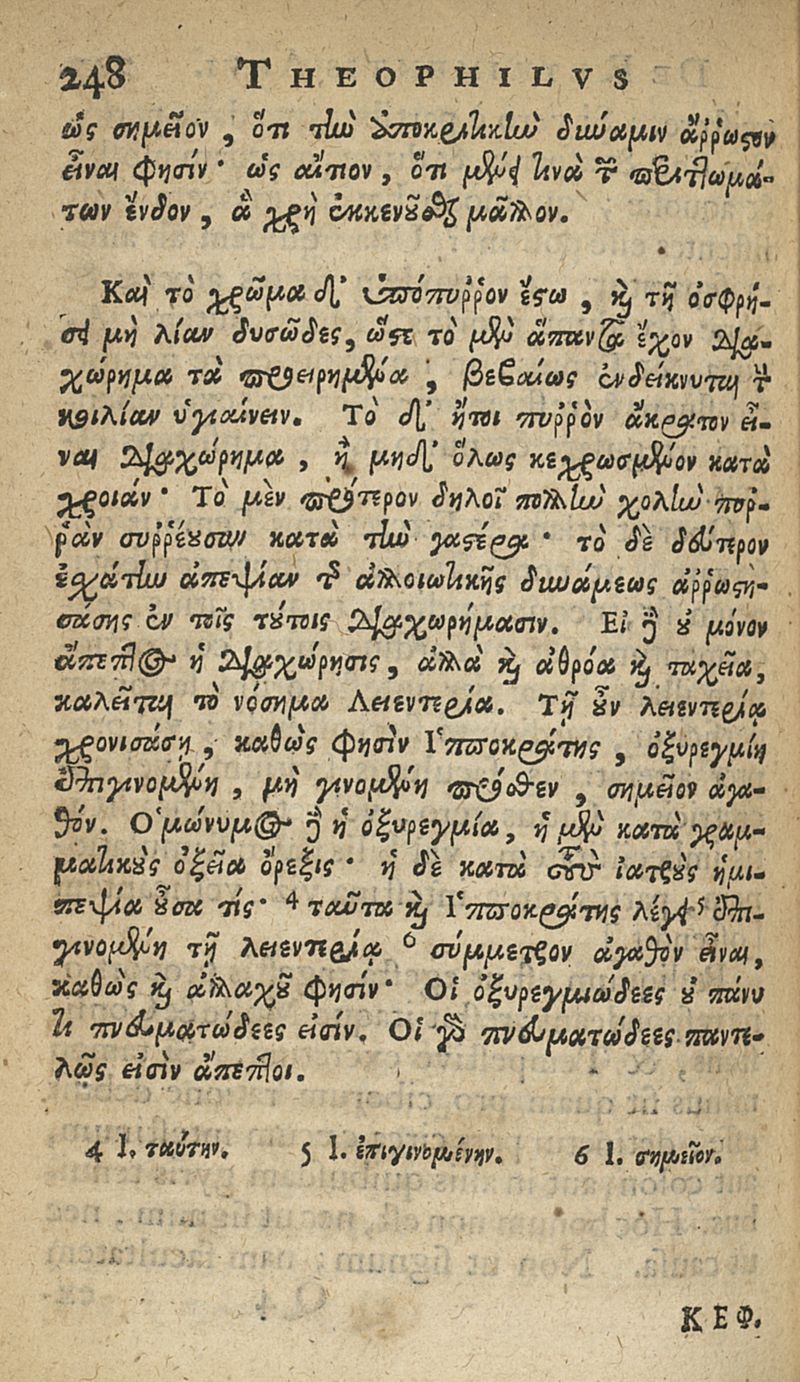 248 THEOPHILVS
ὡς σημεῖον, ὅτι τὴν ὑποκριτικὴν δύναμιν ἄῤῥωστον
εἶναι φησίν· ὡς αἴτιον, ὅτι μένει τινὰ τῶν περιττωμά-
των ἔνδον, ἃ χρὴ ἐκκενοῦσθαι μᾶλλον.
Καὶ τὸ χρῶμα δ' ὑπόπυῤῥον ἔστω, καὶ τῇ ὀσφρή-
σει μὴ λίαν δυσῶδες, ὥστε τὸ μὲν ἅπαντα ἔχον δια-
χώρημα τὰ προειρημένα, βεβαίως ἐνδείκνυται τὴν
κοιλίαν ὑγιαίνειν. Τὸ δ' ἤτοι πυῤῥὸν ἄκρατον εἶ-
ναι διαχώρημα, ἢ μηδ' ὅλως κεχρωσμένον κατὰ
χροιάν· Τὸ μὲν πρότερον δηλοῖ πολλὴν χολὴν πυῤ-
ῥὰν συῤῥέουσαν κατὰ τὴν γαστέρα· τὸ δὲ δεύτερον
ἐσχάτην ἀπεψίαν τῆς ἀλλοιωτικῆς δυνάμεως ἀῤῥωστη-
σάσης ἐν τοῖς τούτοις διαχωρήμασιν. Εἰ δὲ οὐ μόνον
ἄπεπτος ἡ διαχώρησις, ἀλλὰ καὶ ἀθρόα καὶ ταχεῖα,
καλεῖται τὸ νόσημα Λειεντερία. Τῇ οὖν λειεντερίᾳ
χρονισάσῃ, καθὼς φησὶν Ἱπποκράτης, ὀξυρεγμίη
ἐπιγινομένη, μὴ γινομένη πρόσθεν, σημεῖον ἀγα-
θόν. Ὁμώνυμος δὲ ἡ ὀξυρεγμία, ἡ μὲν κατὰ γραμ-
ματικοὺς ὀξεῖα ὄρεξις· ἡ δὲ κατὰ τοὺς ἰατροὺς ἡμι-
πεψία οὖσα τίς· 4 ταῦτα καὶ Ἱπποκράτης λέγει 5 ἐπι-
γινομένη τῇ λειεντερίᾳ 6 σύμμετρον ἀγαθὸν εἶναι,
καθὼς καὶ ἀλλαχοῦ φησίν· Οἱ ὀξυρεγμιώδεες οὐ πάνυ
τι πνευματώδεες εἰσίν. Οἱ γὰρ πνευματώδεες παντε-
λῶς εἰσὶν ἄπεπτοι.
4 l. ταύτην. 5 l. ἐπιγινομένην. 6 l. σημεῖον.
ΚΕΦ.